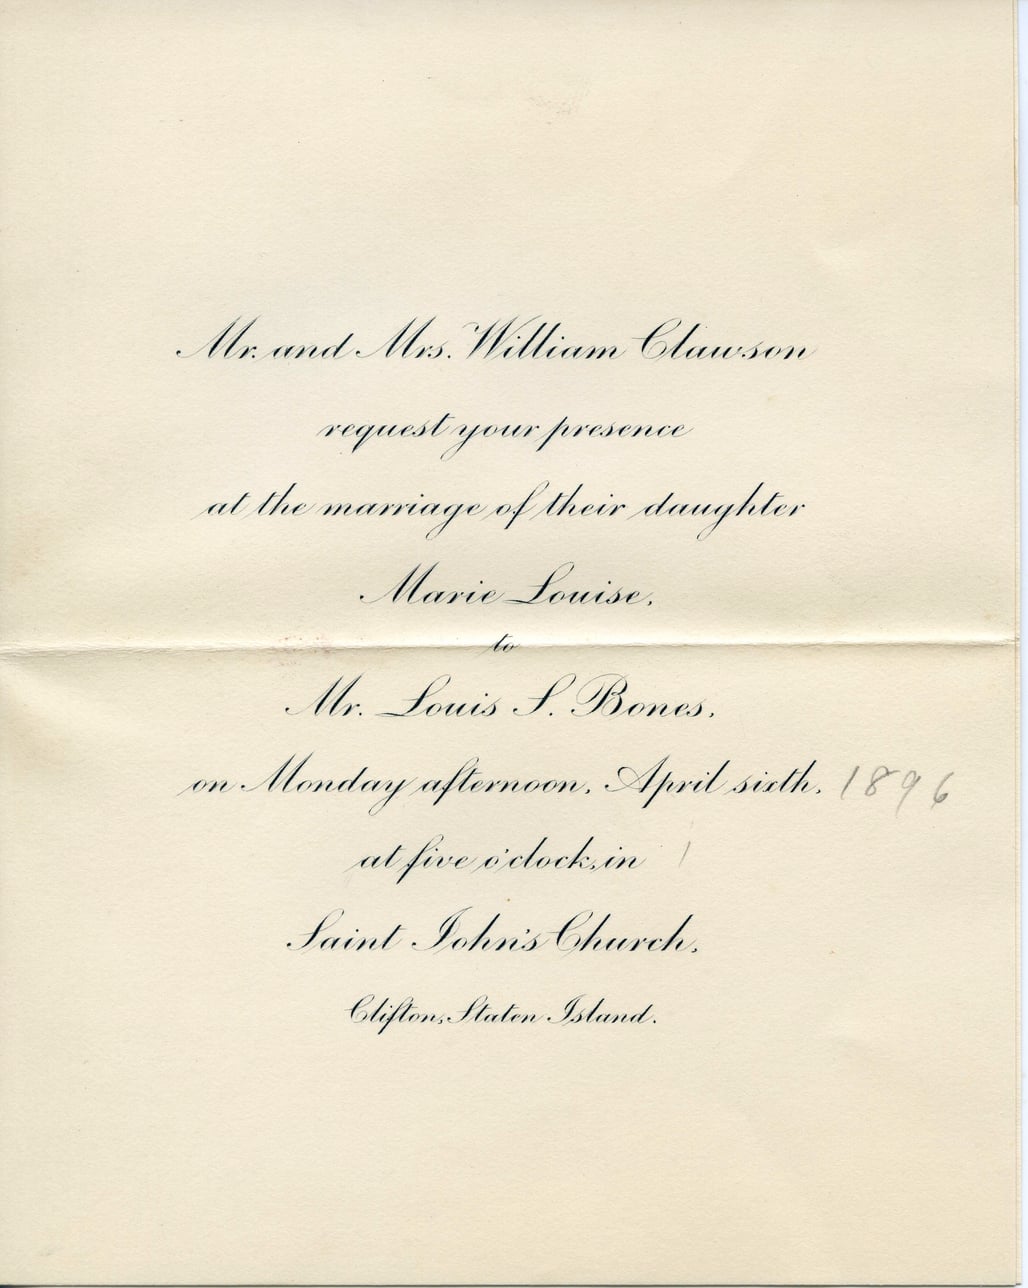 Mr. and Mrs. William Clawson
request your presence
at the marriage of their daughter
Marie Louise,
to
Mr. Louis S. Bones,
on Monday afternoon, April sixth, 1896
at five o'clock, in
Saint John's Church,
Clifton, Staten Island.